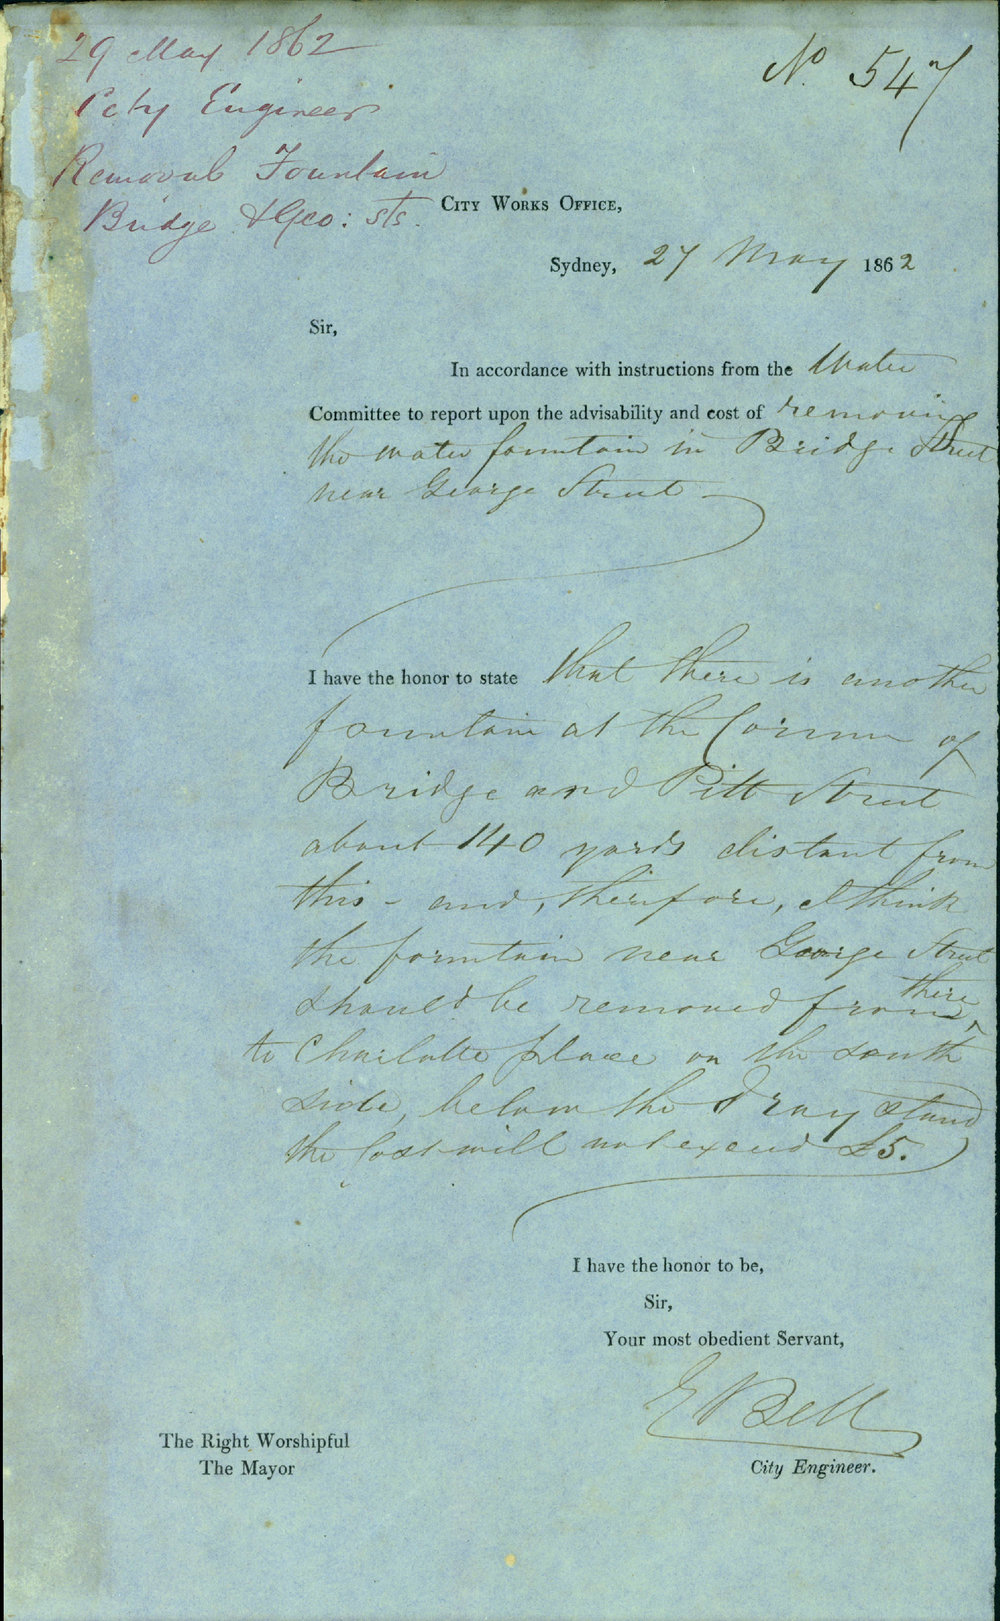 29 May 1862
City Engineer
Removal Fountain
Bridge & Geo: sts.
No 547
City Works Office,
Sydney, 27 May 1862
Sir,
In accordance with instructions from the Water
Committee to report upon the advisability and cost of removing
the water fountain in Bridge Street
near George Street
I have the honor to state that there is another
fountain at the Corner of
Bridge and Pitt Street
about 140 yards distant from
this - and, therefore, I think
the fountain near George Street
should be removed from there
to Charlotte place on the south
side, below the Dray stand
the Cost will not exceed £5.
I have the honor to be,
Sir,
Your most obedient Servant,
E Bell
City Engineer.
The Right Worshipful
The Mayor